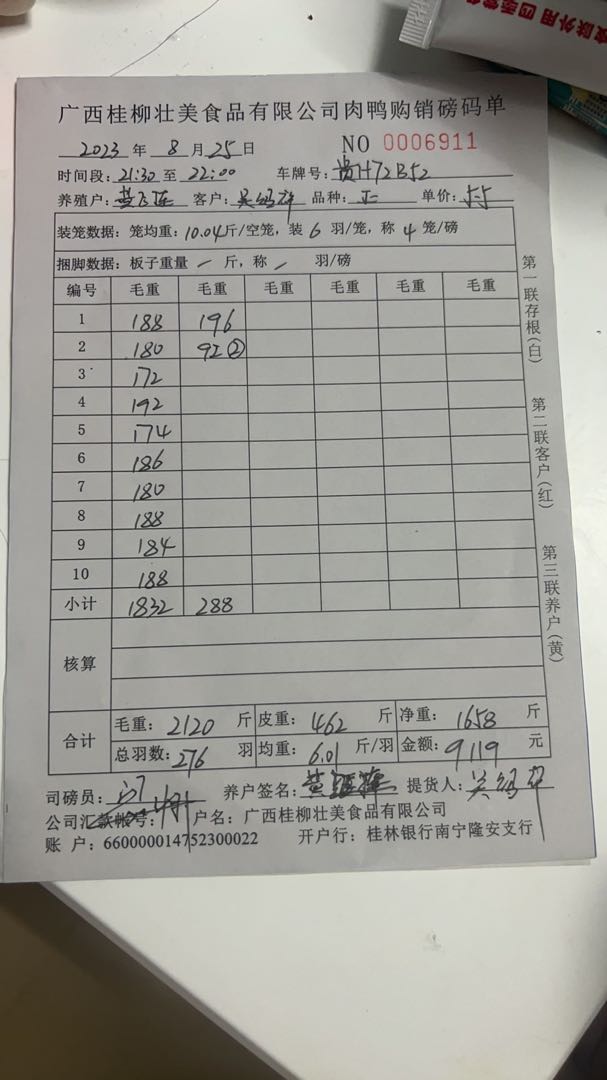 皮肤外用 四季常备
广西桂柳壮美食品有限公司肉鸭购销磅码单
2023 年 8 月 25 日 NO 0006911
时间段: 21:30 至 22:00 车牌号: 贵H72B52
养殖户: 客户: 品种: 单价: 5.5
装笼数据: 笼均重: 10.04斤/空笼, 装 6 羽/笼, 称 4 笼/磅
捆脚数据: 板子重量 / 斤, 称 / 羽/磅
编号 毛重 毛重 毛重 毛重 毛重 毛重
1 188 196
2 180 92②
3 172
4 192
5 174
6 186
7 180
8 188
9 184
10 188
小计 1832 288
核算
合计 毛重: 2120 斤 皮重: 462 斤 净重: 1658 斤
总羽数: 276 羽 均重: 6.01 斤/羽 金额: 9119 元
司磅员: 养户签名: 提货人:
公司汇款帐号: 户名: 广西桂柳壮美食品有限公司
账 户: 660000014752300022 开户行: 桂林银行南宁隆安支行
第一联存根(白)
第二联客户(红)
第三联养户(黄)